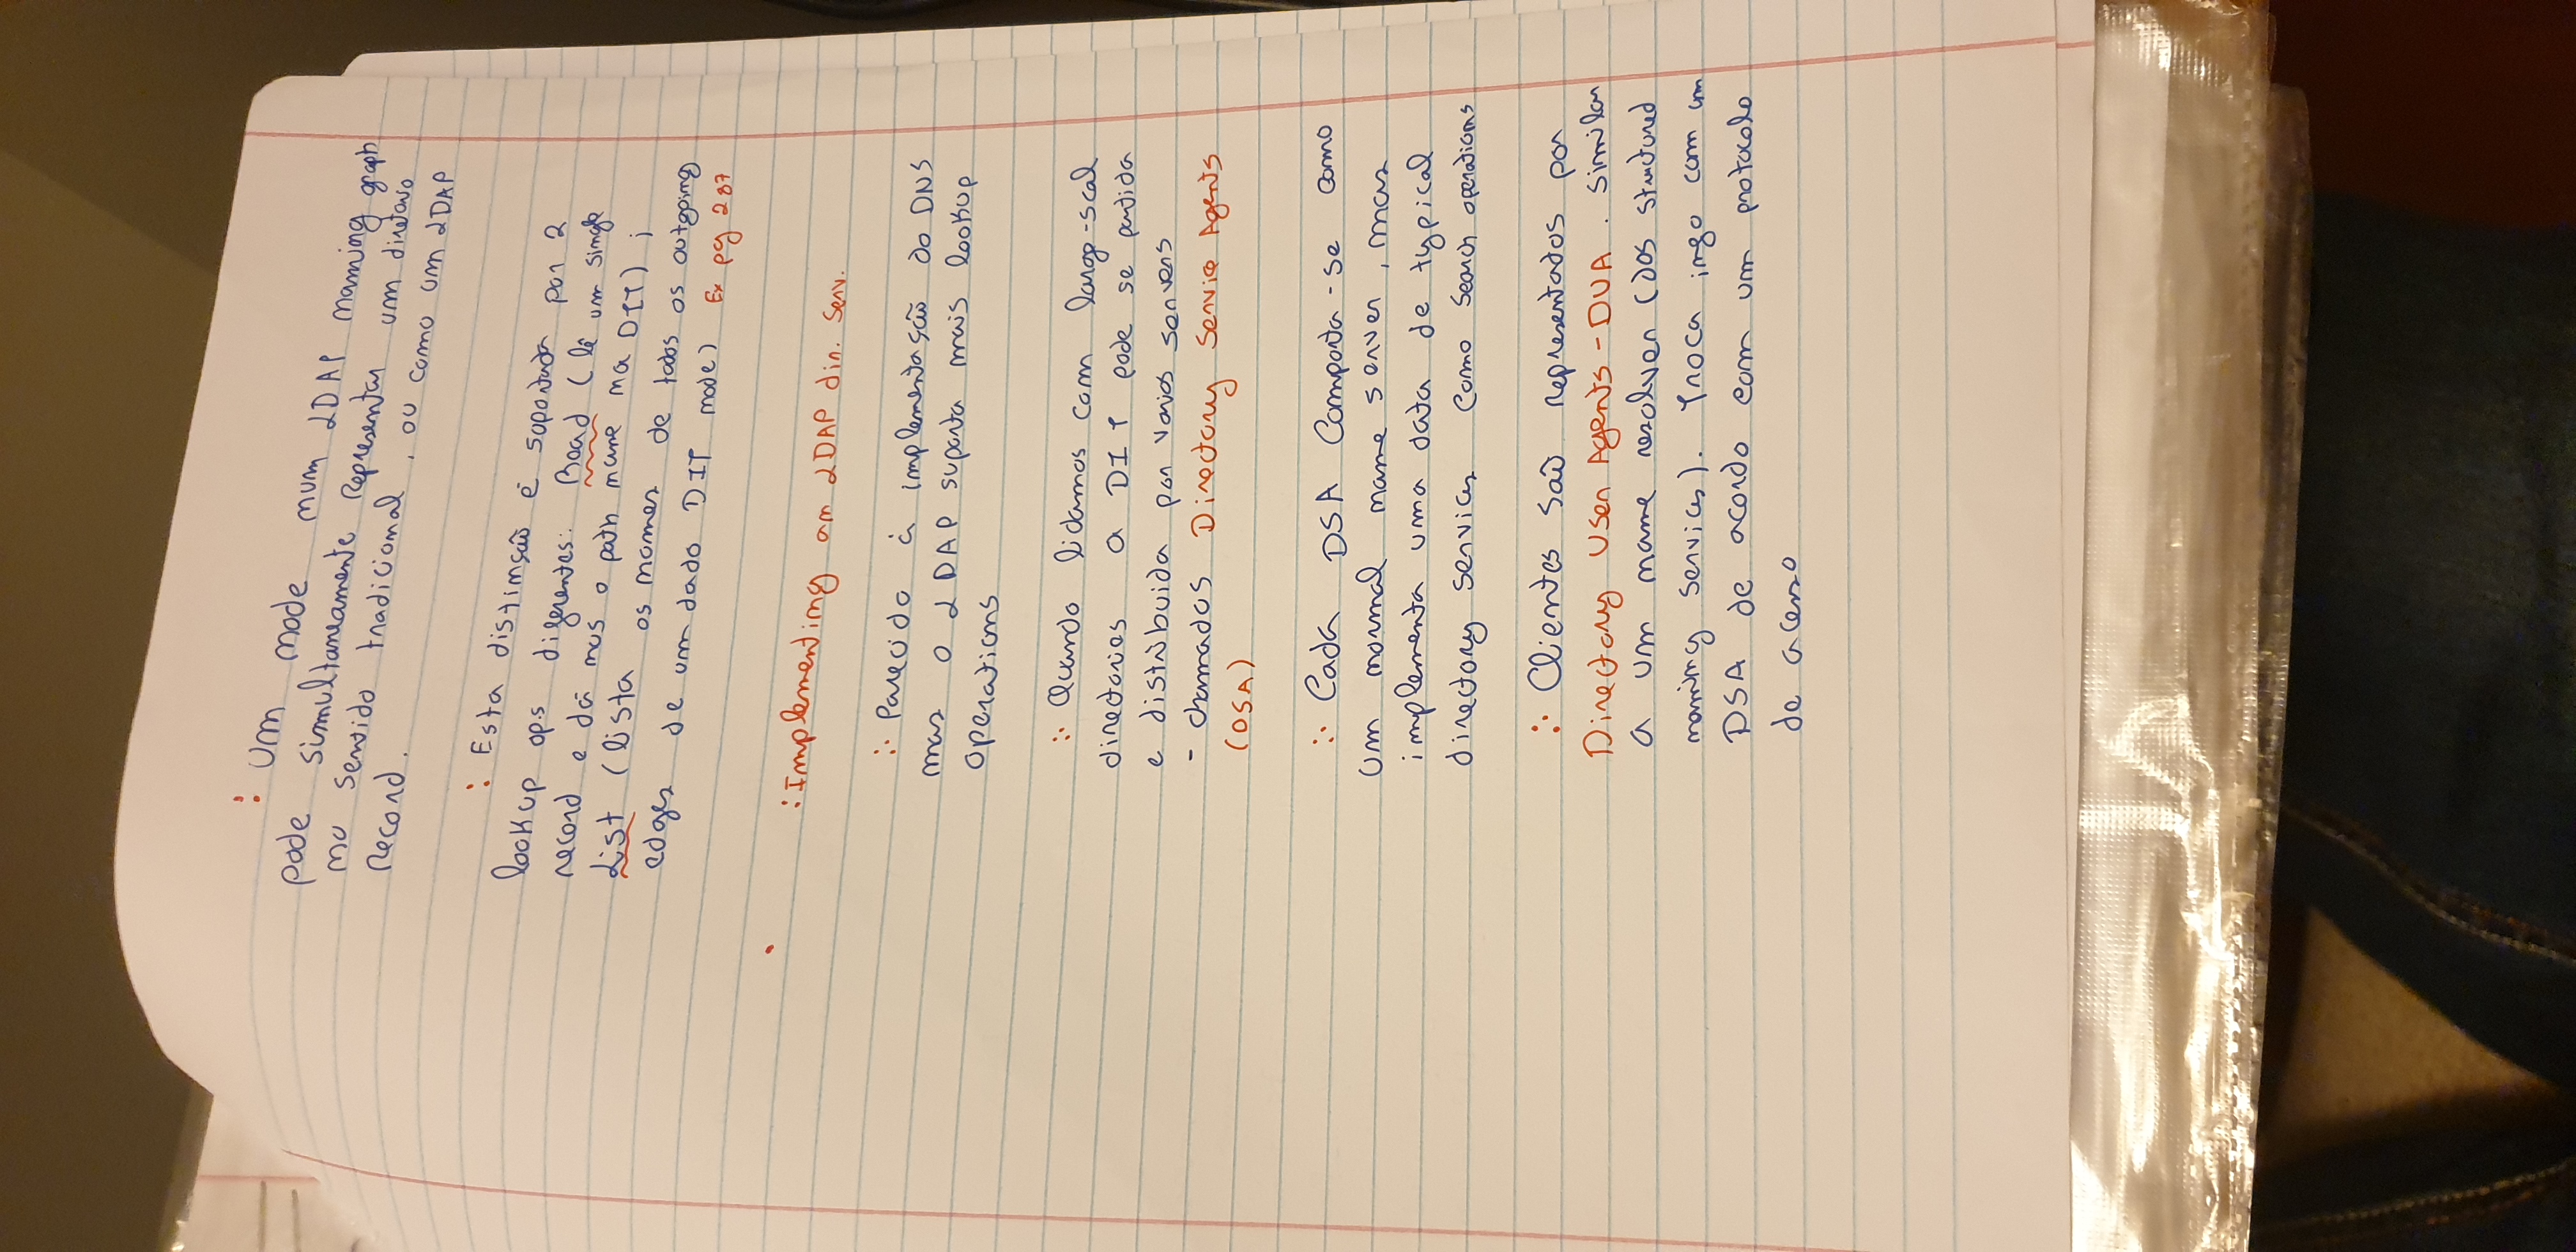 : Um node num LDAP naming graph
pode simultaneamente Representar um diretorio
no sentido tradicional, ou como um LDAP
Record.
: Esta distinsão é suportada por 2
lookup op.s diferentes: Read (lê um single
record e dá nos o path name na DIT) ;
List (lista os nomes de todos os outgoing
edges de um dado DIT node) Ex pg 287
: Implementing an LDAP dir. Serv.
:. Parecido à implementação do DNS
mas o LDAP suporta mais lookup
operations
:. Quando lidamos com large-scal
directories a DIT pode se partida
e distribuida por varios servers
- chamados Directory Service Agents
(DSA)
:. Cada DSA Comporta-se como
um normal name server, mas
implementa uma data de typical
directory services como Search operations
:. Clientes são representados por
Directory User Agents - DUA. Similar
a um name resolver (dos structured
naming services). Troca info com um
DSA de acordo com um protocolo
de acesso